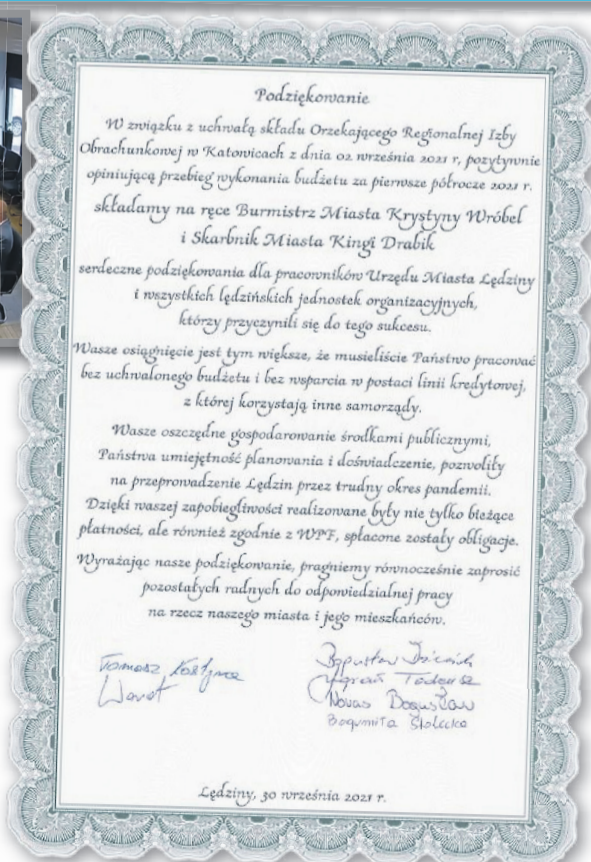 Podziękowanie
W związku z uchwałą składu Orzekającego Regionalnej Izby
Obrachunkowej w Katowicach z dnia 02 września 2021 r, pozytywnie
opiniującą przebieg wykonania budżetu za pierwsze półrocze 2021 r.
składamy na ręce Burmistrz Miasta Krystyny Wróbel
i Skarbnik Miasta Kingi Drabik
serdeczne podziękowania dla pracowników Urzędu Miasta Lędziny
i wszystkich lędzińskich jednostek organizacyjnych,
którzy przyczynili się do tego sukcesu.
Wasze osiągnięcie jest tym większe, że musieliście Państwo pracować
bez uchwalonego budżetu i bez wsparcia w postaci linii kredytowej,
z której korzystają inne samorządy.
Wasze oszczędne gospodarowanie środkami publicznymi,
Państwa umiejętność planowania i doświadczenie, pozwoliły
na przeprowadzenie Lędzin przez trudny okres pandemii.
Dzięki waszej zapobiegliwości realizowane były nie tylko bieżące
płatności, ale również zgodnie z WPF, spłacone zostały obligacje.
Wyrażając nasze podziękowanie, pragniemy równocześnie zaprosić
pozostałych radnych do odpowiedzialnej pracy
na rzecz naszego miasta i jego mieszkańców.
Tomasz
Bogusław
Tadeusz
Bogusław
Bogumiła
Lędziny, 30 września 2021 r.